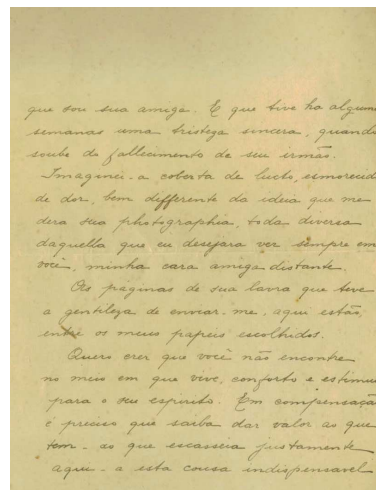 que sou sua amiga. E que tive ha algumas
semanas uma tristeza sincera, quando
soube do fallecimento de seu irmão.
Imaginei-a coberta de lucto, esmorecida
de dor, bem differente da ideia que me
dera sua photographia, toda diversa
daquella que eu desejara ver sempre em
você, minha cara amiga distante.
As páginas de sua lavra que teve
a gentileza de enviar-me, aqui estão,
entre os meus papeis escolhidos.
Quero crer que você não encontre
no meio em que vive, conforto e estimulo
para o seu espirito. Em compensação
é preciso que saiba dar valor ao que
tem - ao que escasseia justamente
aqui - a esta cousa indispensavel